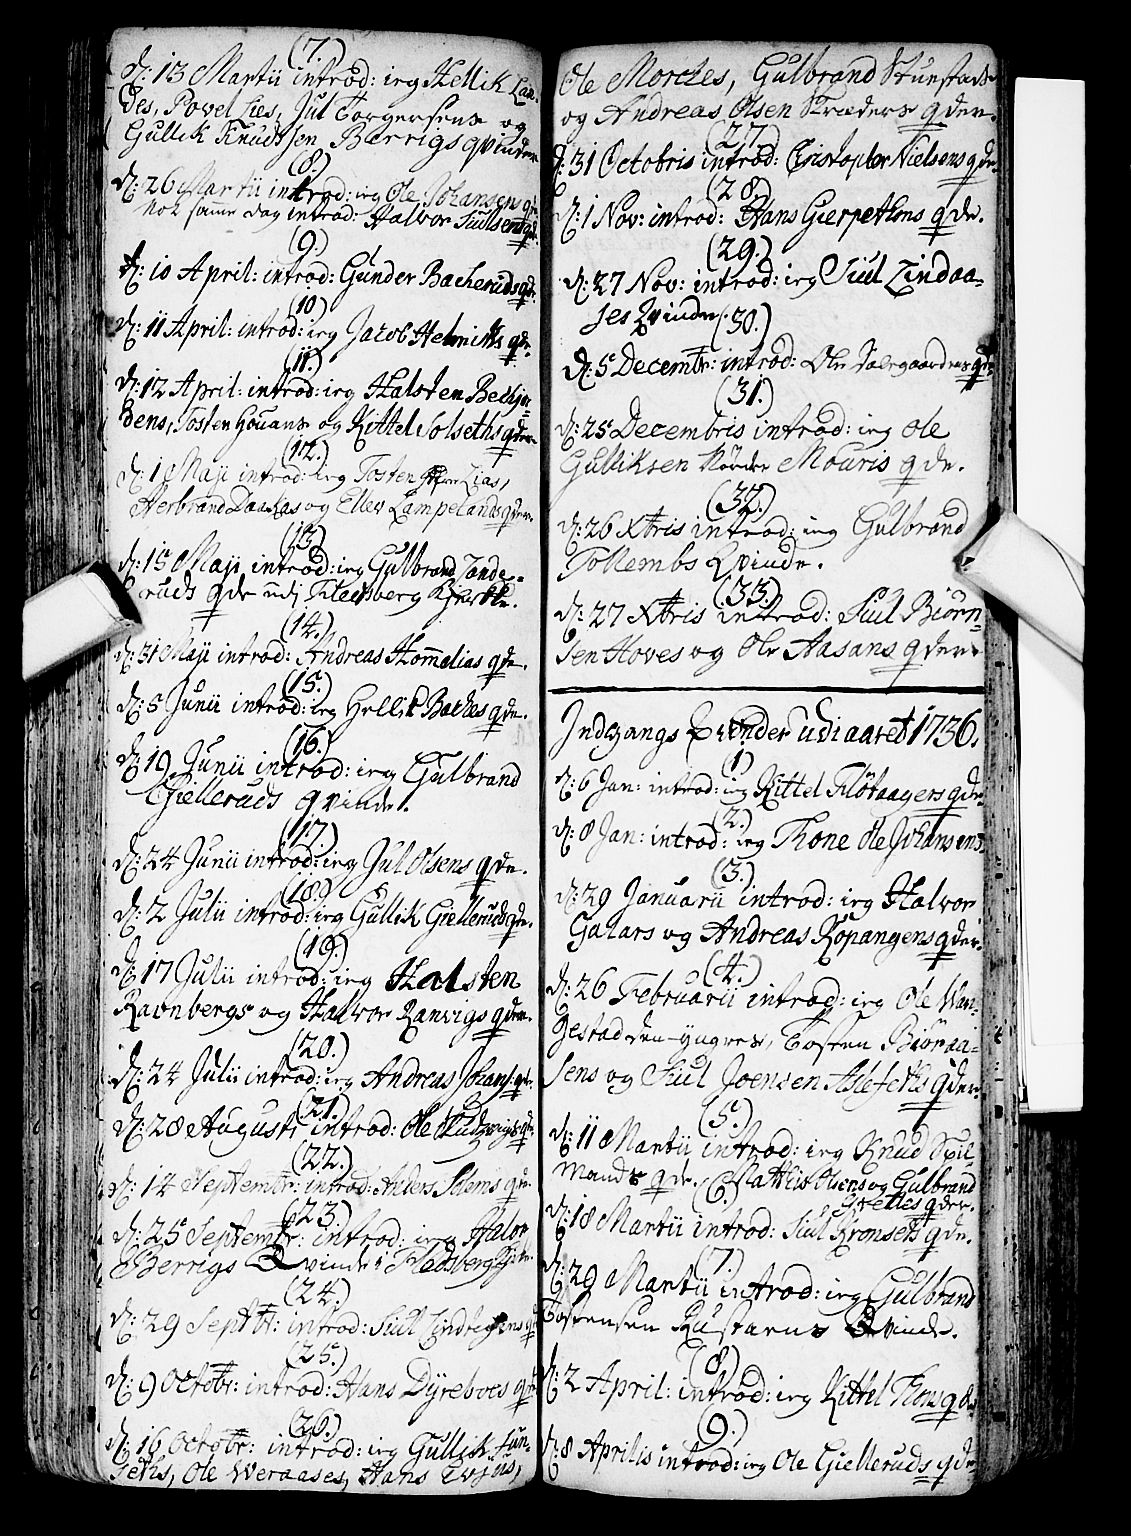 (7.)
d: 13 Martii introd: ieg Hellik Lan-
des, Povel Lies, Jul Torgersens og
Gullik Knudtsen Berrigs qvinder
(8.)
d: 26 Martii introd: ieg Ole Johansen q
Nok samme dag introd: Halvor Juulsens qde.
(9.)
d: 10 April: introd: Gunder Bacheruds qde.
(10)
d: 11 April: introd: ieg Jacob Helmichs qde.
(11.)
d: 12 April: introd: ieg Halsten
dens, Tosten Houans og Kittel Solseths qder
(12.)
d: 1 Maji introd: ieg Tosten Lias,
Herbrand Daakas og Ellev Lampelands qder.
(13)
d: 15 Maji introd: ieg Gulbrand Tande-
ruds qde udj Flesberg Kircke.
(14.)
d: 31 Maji introd: Andreas Hommelias qde.
(15.)
d: 5 Junii introd: ieg Hellik Bakes qde.
(16.)
d: 19 Junii introd: ieg Gulbrand
Gielleruds qvinde.
(17)
d: 24 Junii introd: ieg Jul Olsens qde.
(18.)
d: 2 Julii introd: ieg Gullik Gielleruds qde.
(19.)
d: 17 Julii introd: ieg Halsten
Ravnbergs og Halvor Ranvigs qder.
(20.)
d: 24 Julii introd: ieg Andreas Johans: qde.
(21.)
d: 28 Augusti introd: Ole Ludvigs qde
(22.)
d: 14 Septembr: introd: Anders Moens qde
(23.)
d: 25 Septembr: introd: ieg Halvor
Berrigs Qvinde i Flesberg Kirke
(24.)
d: 29 Septbr: introd: Siul
(25.)
d: 9 Octobr: introd: Hans Dyreboes qde
(26.)
d: 16 Octobr: introd: ieg Gullik Fun-
seths, Ole Weraases, Hans
Ole Morches, Gulbrand
og Andreas Olsen Skræders qder.
(27.)
d: 31 Octobris introd: Christopher Nielsens qde
(28.)
d: 1 Nov: introd: Hans Gierpethons qde.
(29.)
d: 27 Nov: introd: ieg Siul Lindaa-
ses Qvinde.
(30.)
d: 5 Decembr: introd: Ole qde
(31.)
d: 25 Decembris introd: ieg Ole
Gulliksen Nørdre Mouris qde.
(32.)
d: 26 Xbris introd: ieg Gulbrand
Tollembs Qvinde.
(33.)
d: 27 Xbris introd: Siul Biørn-
sen Hoves og Ole Aasans qder
Indgangs Qvinder udi aaret 1736.
(1)
d: 6 Jan: introd: ieg Kittel Fløtaagers qde
(2.)
d: 8 Jan: introd: ieg Thone Ole Johansens.
(3.)
d: 29 Januarii introd: ieg Halvor
Galaas og Andreas Kopangens qder.
(4.)
d: 26 Februarii introd: ieg Ole Wan-
gestad den yngres, Tosten Biøraa-
sens og Siul Joensen Aslefeths qder
(5.)
d: 11 Martii introd: ieg Knud Spil-
mands qde. Mathis Olsens og Gulbrand
qder.
(6.)
d: 18 Martii introd: Siul Kronseths qde.
(7.)
d: 29 Martii introd: ieg Gulbrand
Tostensen Rustands Qvinde.
(8.)
d: 2 April: introd: ieg Kittel Thons qde
(9.)
d: 8 Aprilis introd: ieg Ole Gielleruds qde